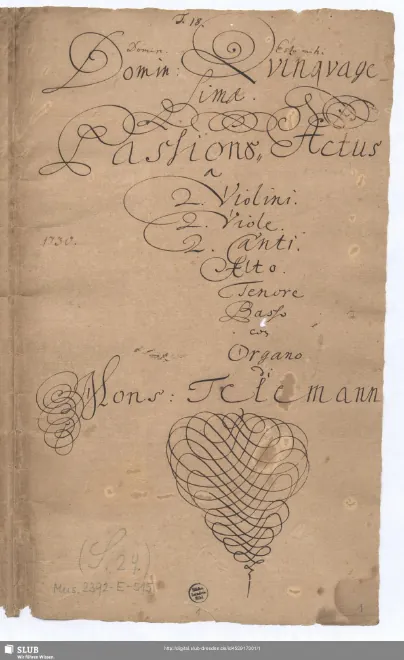 T. 18.
Domin: Quinquage_
simæ.
Passions,, Actus
a
2. Violini.
2. Viole.
1730.
2. Canti.
Alto.
Tenore
Basso
con
Organo
di
Mons: Telemann
(S. 24)
Mus. 2392-E-595
1
SLUB
Wir führen Wissen.
http://digital.slub-dresden.de/id453917327/1